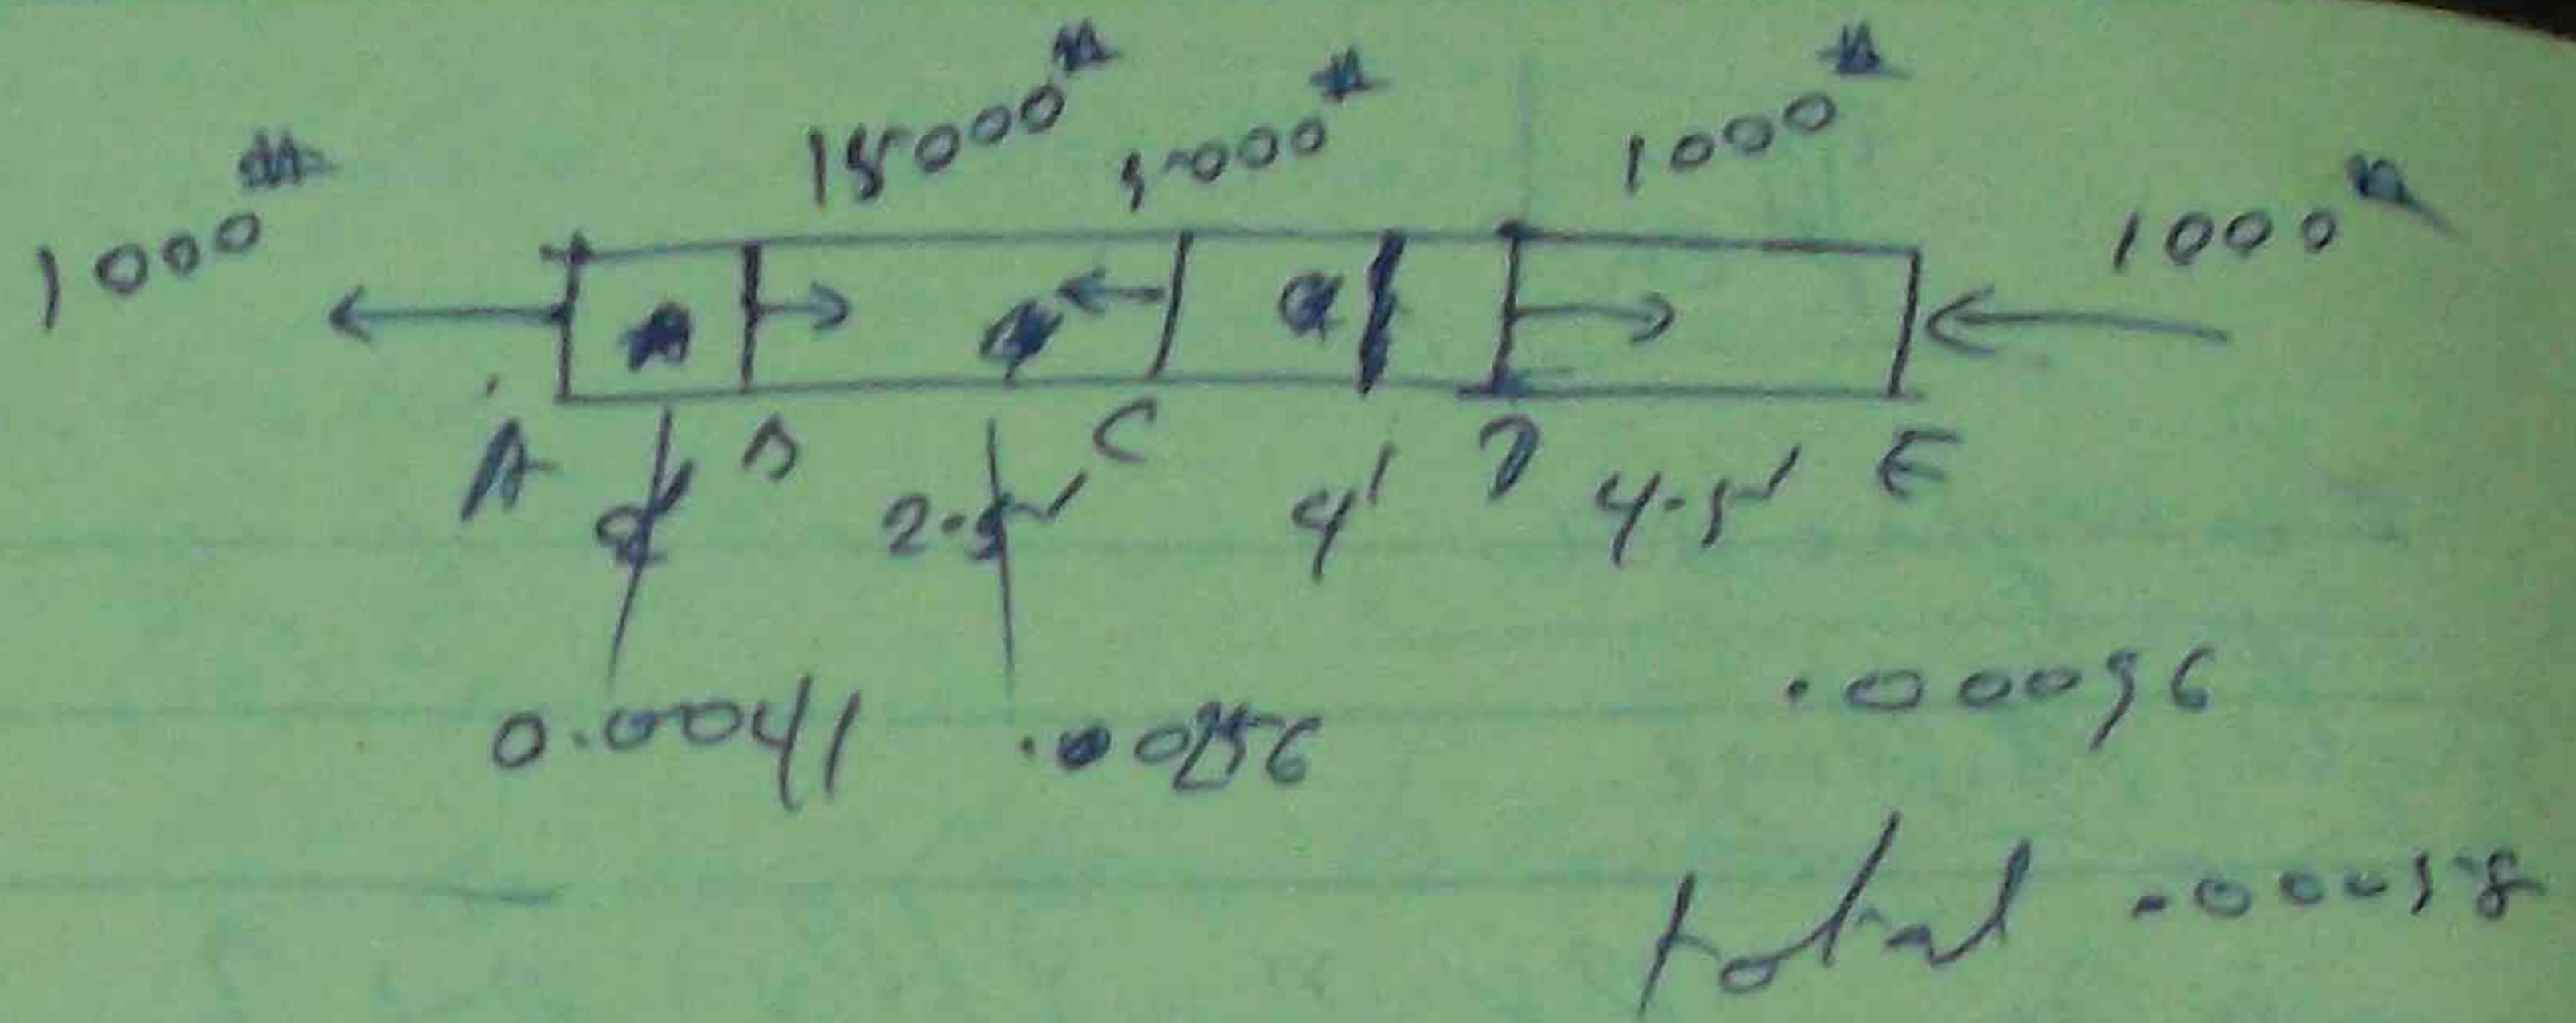 1000# 15000# 5000# 1000# 1000#
A B C D E
2.5' 4' 4.5'
0.0041 .00096
total